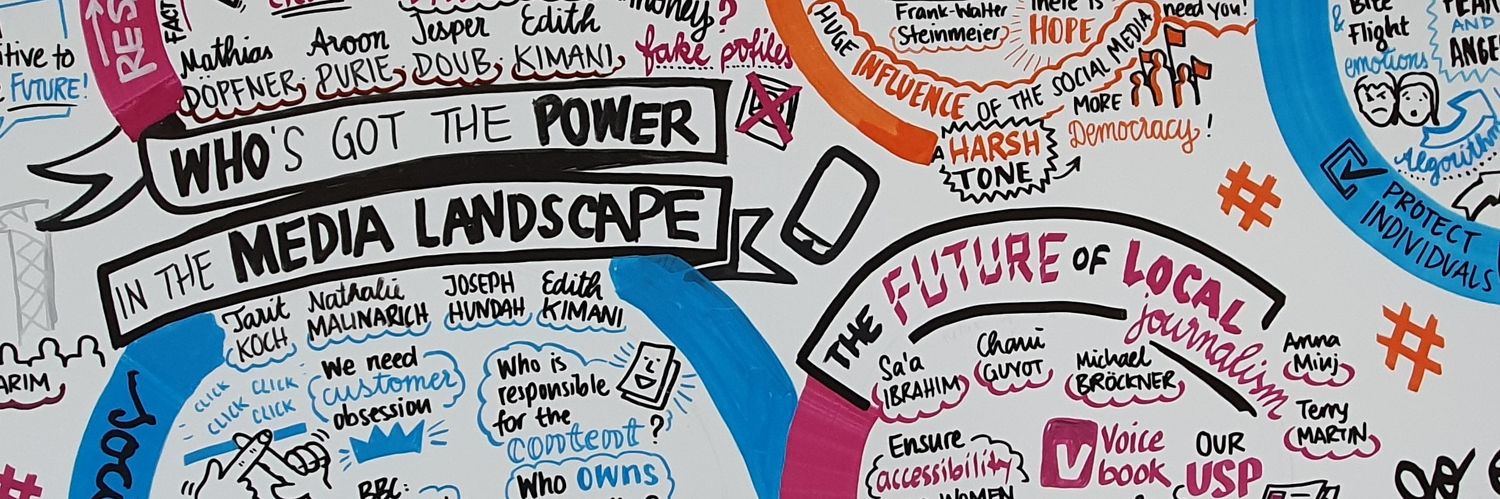 itive to
FUTURE!
RES
FACT
Mathias
DÖPFNER
Aroon
PURIE
Jesper
DOUB
Edith
KIMANI
money?
fake pofiles
WHO'S GOT THE POWER
IN THE MEDIA LANDSCAPE
Tarit
KOCH
Nathalie
MALINARICH
JOSEPH
HUNDAH
Edith
KIMANI
ARIM
CLICK CLICK
CLICK CLICK
We need
customer
obsession
Who is
responsible
for the
content?
Who owns
BBC:
Frank-Walter
Steinmeier
There is
HOPE
need you!
HUGE INFLUENCE OF THE SOCIAL MEDIA
A HARSH
TONE
MORE
Democracy!
#
THE FUTURE OF LOCAL
journalism
Sa'a
IBRAHIM
Chani
GUYOT
Michael
BRÖCKNER
Amna
Minj
Terry
MARTIN
Ensure
accessibility
WOMEN
V Voice
book
OUR
USP
#
Bite
& Flight
emotions
FEAR
AND
ANGE
Algorithm
PROTECT
INDIVIDUALS
#